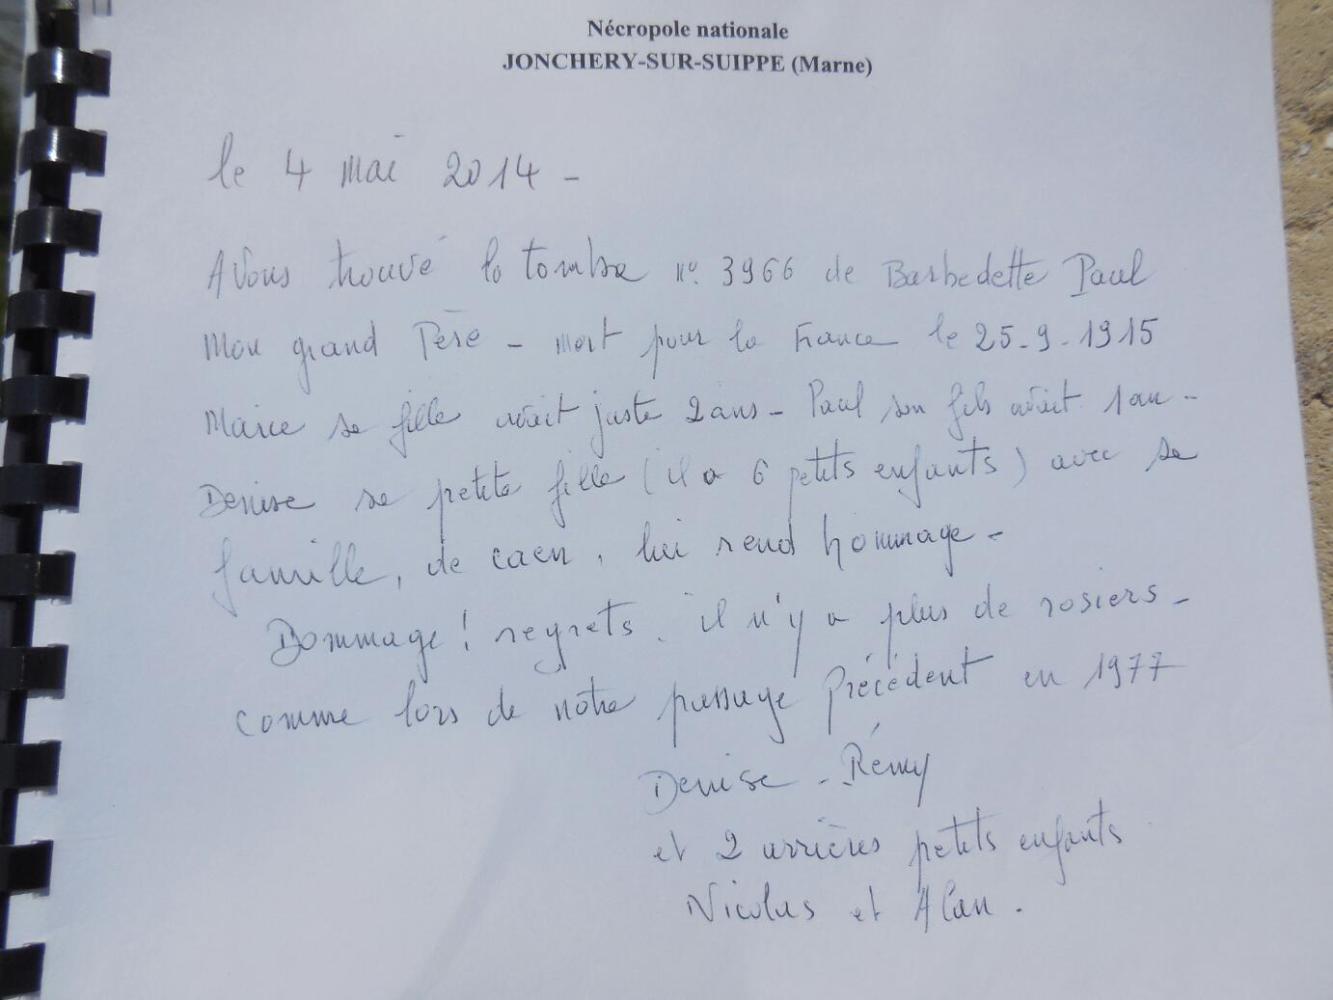 Nécropole nationale
JONCHERY-SUR-SUIPPE (Marne)
le 4 mai 2014 -
Avons trouvé la tombe n° 3966 de Barbedette Paul
Mon grand Père - mort pour la France le 25-9-1915
Marie sa fille avait juste 2 ans - Paul son fils avait 1 an -
Denise sa petite fille (il a 6 petits enfants) avec sa
famille, de caen, lui rend hommage -
Dommage ! regrets. il n'y a plus de rosiers -
comme lors de notre passage précédent en 1977
Denise - Rémy
et 2 arrières petits enfants
Nicolas et Alan.